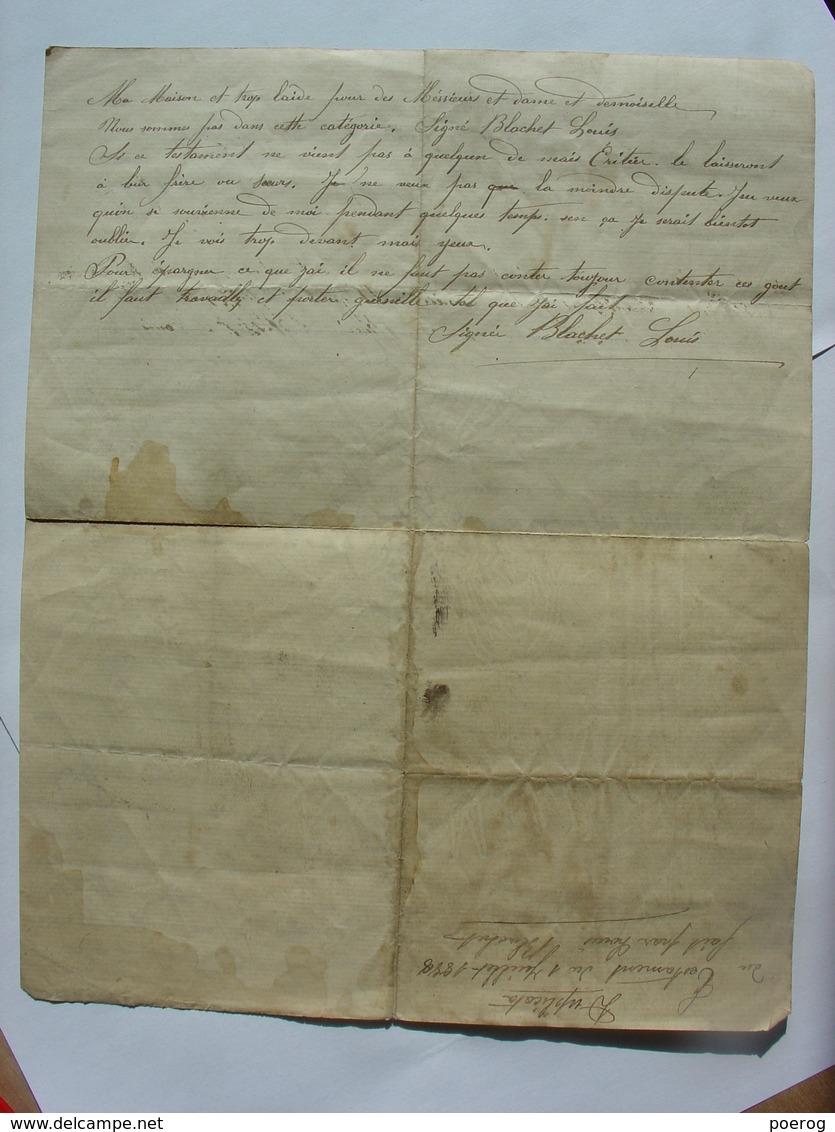 Ma Maison et trop laide pour des Méssieurs et dame et demoiselle
Nous sommes pas dans cette catégorie. Signé Blachet Louis
Si ce testament ne vient pas à quelqun de mais Eritier. le laisseront
à leur frère ou sœurs. Je ne veux pas que la moindre dispute. Jeu veux
qu'on se souvienne de moi pendant quelques temps. sen ça je serait bientot
oublier. Je vois trop devant mais yeux.
Pour épargner ce que jai il ne faut pas conter toujour contenter ces gout
il faut travailly et porter guenille tel que j'ai fait
Signée Blachet Louis
Duplicata
du Testament du 1 Juillet 1888
fait par Louis Blachet
www.delcampe.net
poerog